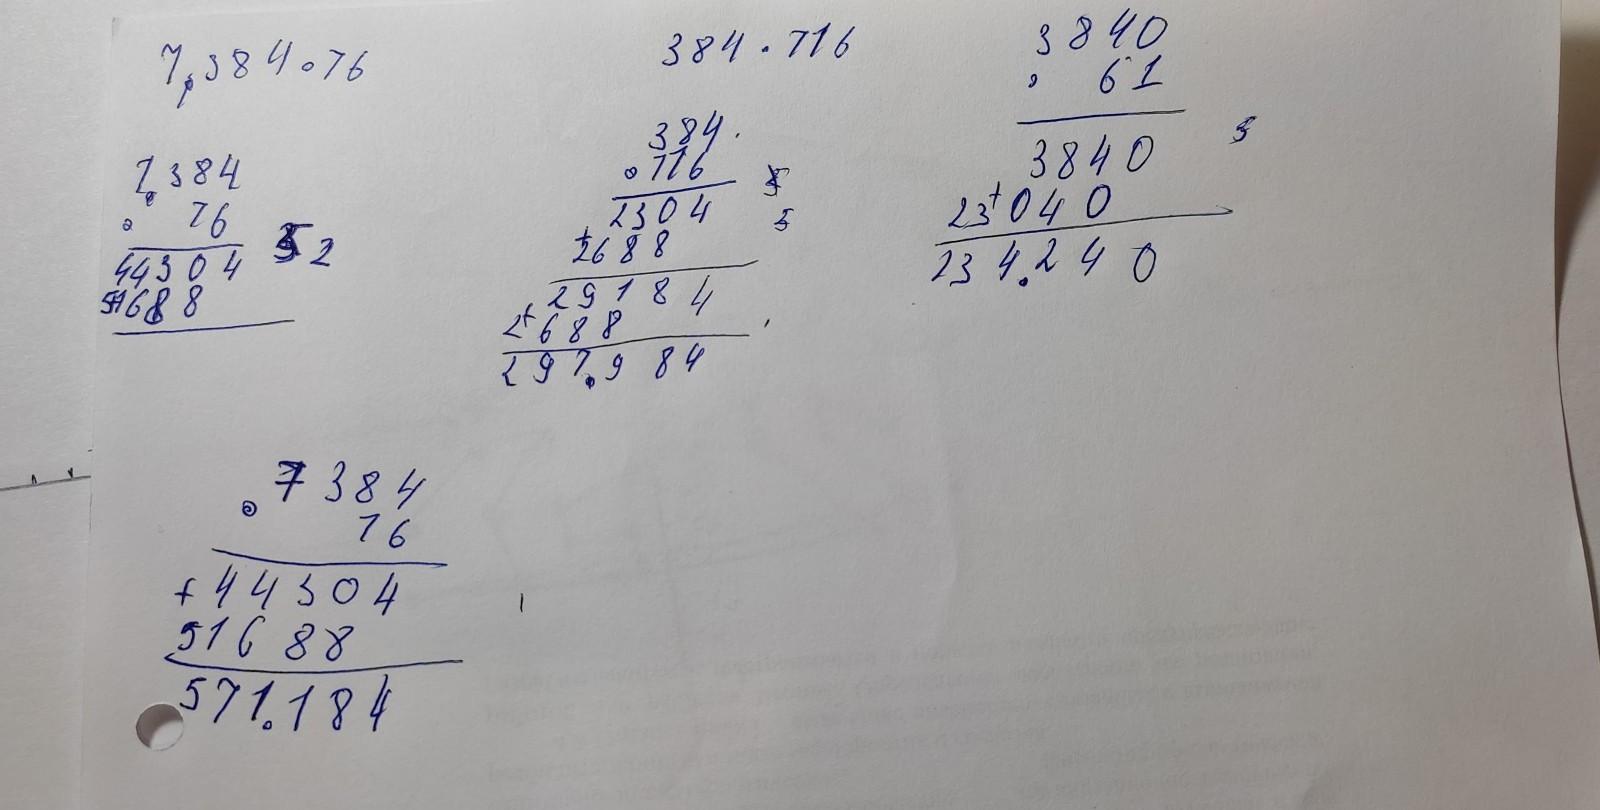 7.384 · 76
7.384
· 76
52
44304
51688
384 · 776
384
· 776
5
2304
5
+
2688
29184
+
2688
297.984
3840
· 61
3840
5
+
23040
234.240
7384
· 76
+ 44304
51688
571.184